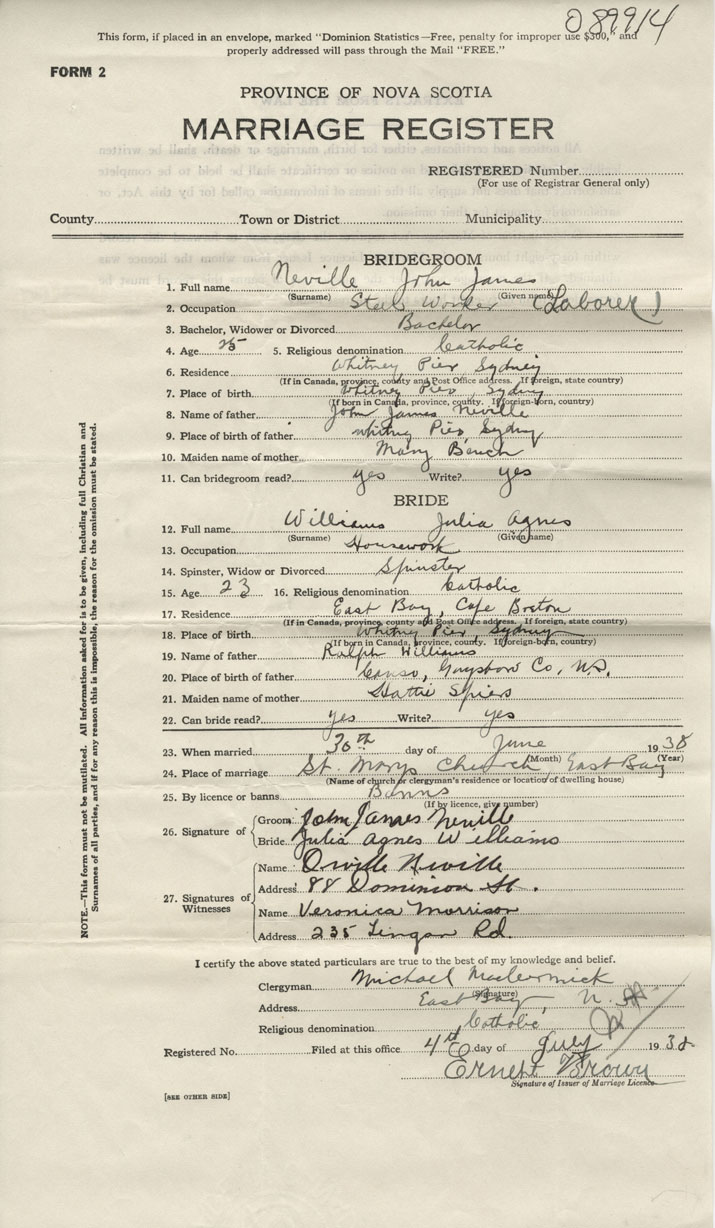 089914
This form, if placed in an envelope, marked "Dominion Statistics—Free, penalty for improper use $300," and
properly addressed will pass through the Mail "FREE."
FORM 2
PROVINCE OF NOVA SCOTIA
MARRIAGE REGISTER
REGISTERED Number
(For use of Registrar General only)
County Town or District Municipality
BRIDEGROOM
1. Full name Neville John James
(Surname) (Given name)
2. Occupation Steel Worker (Laborer)
3. Bachelor, Widower or Divorced Bachelor
4. Age 25 5. Religious denomination Catholic
6. Residence Whitney Pier Sydney
(If in Canada, province, county and Post Office address. If foreign, state country)
7. Place of birth Whitney Pier, Sydney
(If born in Canada, province, county. If foreign-born, country)
8. Name of father John James Neville
9. Place of birth of father Whitney Pier, Sydney
10. Maiden name of mother Mary
11. Can bridegroom read? yes Write? yes
BRIDE
12. Full name Williams Julia Agnes
(Surname) (Given name)
13. Occupation Housework
14. Spinster, Widow or Divorced Spinster
15. Age 23 16. Religious denomination Catholic
17. Residence East Bay, Cape Breton
(If in Canada, province, county and Post Office address. If foreign, state country)
18. Place of birth Whitney Pier, Sydney
(If born in Canada, province, county. If foreign-born, country)
19. Name of father Ralph Williams
20. Place of birth of father Canso, Guysboro Co, N.S.
21. Maiden name of mother Hattie Spiers
22. Can bride read? yes Write? yes
23. When married 30th day of June 1938
(Month) (Year)
24. Place of marriage St. Marys Church, East Bay
(Name of church or clergyman's residence or location of dwelling house)
25. By licence or banns Banns
(If by licence, give number)
26. Signature of { Groom John James Neville
Bride Julia Agnes Williams
27. Signatures of Witnesses { Name Orville Neville
Address 88 Dominion St.
Name Veronica Morrison
Address 235 Lingan Rd.
I certify the above stated particulars are true to the best of my knowledge and belief.
Clergyman Michael MacCormick
(Signature)
Address East Bay, N.S.
Religious denomination Catholic
Registered No. Filed at this office 4th day of July 1938
Ernest Brown
Signature of Issuer of Marriage Licence
[SEE OTHER SIDE]
NOTE.—This form must not be mutilated. All information asked for is to be given, including full Christian and
Surnames of all parties, and if for any reason this is impossible, the reason for the omission must be stated.